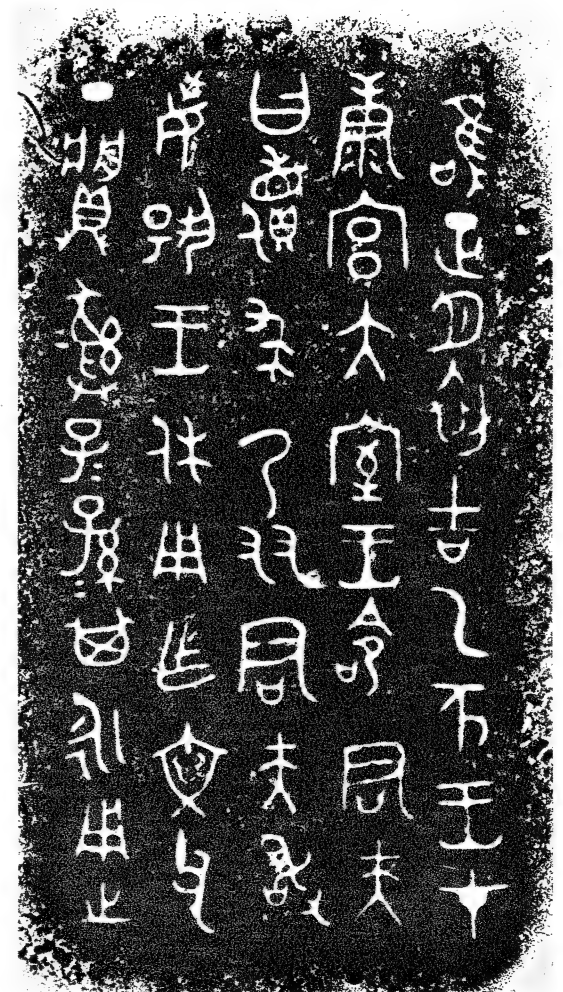 唯正月初吉乙亥王才
康宮大室王命君夫
曰儥求乃友君夫敢
每揚王休用乍文父
丁䵼彝子=孫=其永用之